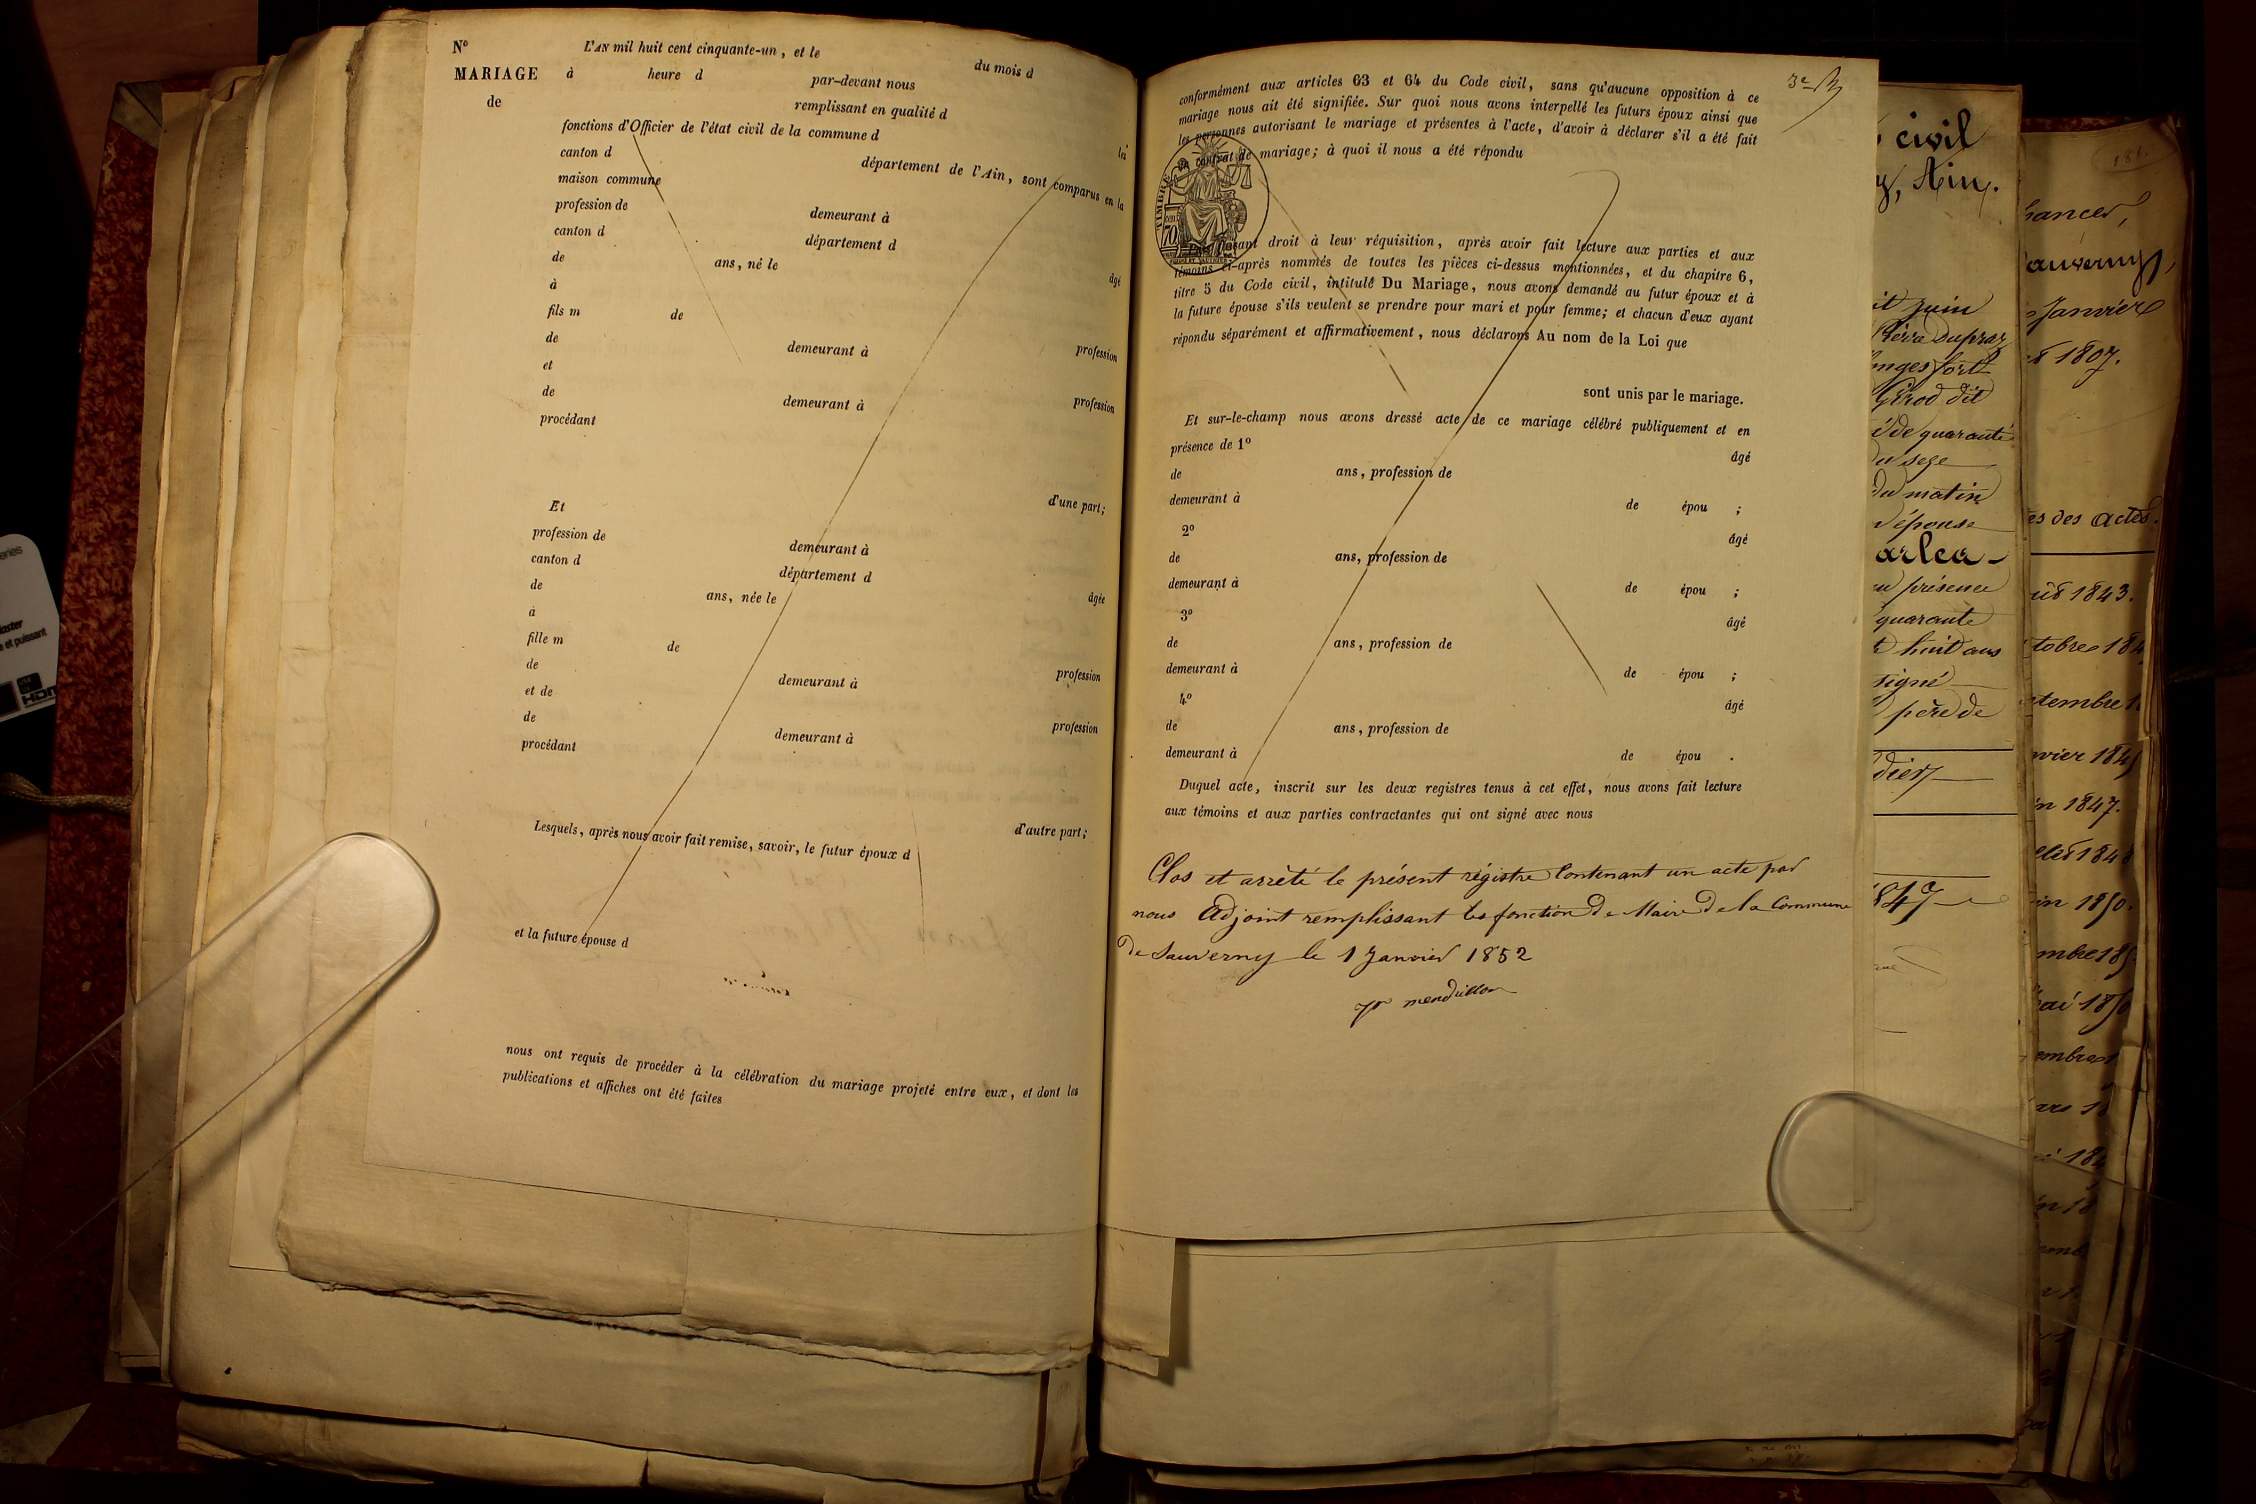 No
MARIAGE
de
L'AN mil huit cent cinquante-un, et le du mois d
à heure d par-devant nous
remplissant en qualité d
fonctions d'Officier de l'état civil de la commune d les
canton d département de l'Ain, sont comparus en la
maison commune
profession de demeurant à
canton d département d
de ans, né le âgé
à
fils m de
de demeurant à profession
et
de demeurant à profession
procédant
d'une part;
Et
profession de demeurant à
canton d département d
de ans, née le âgée
à
fille m de
de demeurant à profession
et de
de demeurant à profession
procédant
d'autre part;
Lesquels, après nous avoir fait remise, savoir, le futur époux d
et la future épouse d
nous ont requis de procéder à la célébration du mariage projeté entre eux, et dont les
publications et affiches ont été faites
3e
conformément aux articles 63 et 64 du Code civil, sans qu'aucune opposition à ce
mariage nous ait été signifiée. Sur quoi nous avons interpellé les futurs époux ainsi que
les personnes autorisant le mariage et présentes à l'acte, d'avoir à déclarer s'il a été fait
un contrat de mariage; à quoi il nous a été répondu
TIMBRE
70
faisant droit à leur réquisition, après avoir fait lecture aux parties et aux
témoins ci-après nommés de toutes les pièces ci-dessus mentionnées, et du chapitre 6,
titre 5 du Code civil, intitulé Du Mariage, nous avons demandé au futur époux et à
la future épouse s'ils veulent se prendre pour mari et pour femme; et chacun d'eux ayant
répondu séparément et affirmativement, nous déclarons Au nom de la Loi que
sont unis par le mariage.
Et sur-le-champ nous avons dressé acte de ce mariage célébré publiquement et en
présence de 1o âgé
de ans, profession de
demeurant à de épou ;
2o âgé
de ans, profession de
demeurant à de épou ;
3o âgé
de ans, profession de
demeurant à de épou ;
4o âgé
de ans, profession de
demeurant à de épou .
Duquel acte, inscrit sur les deux registres tenus à cet effet, nous avons fait lecture
aux témoins et aux parties contractantes qui ont signé avec nous
Clos et arrêté le présent régistre Contenant un acte par
nous Adjoint remplissant les fonction de Maire de la Commune
de Sauverny le 1 Janvier 1852
mendrillon
civil
Ain.
juin
Girod dit
de quarante
du matin
épouse
présence
quarante
huit ans
signé
père de
1847
Sauverny,
Janvier
1807.
des actes.
1843.
1847.
1850.